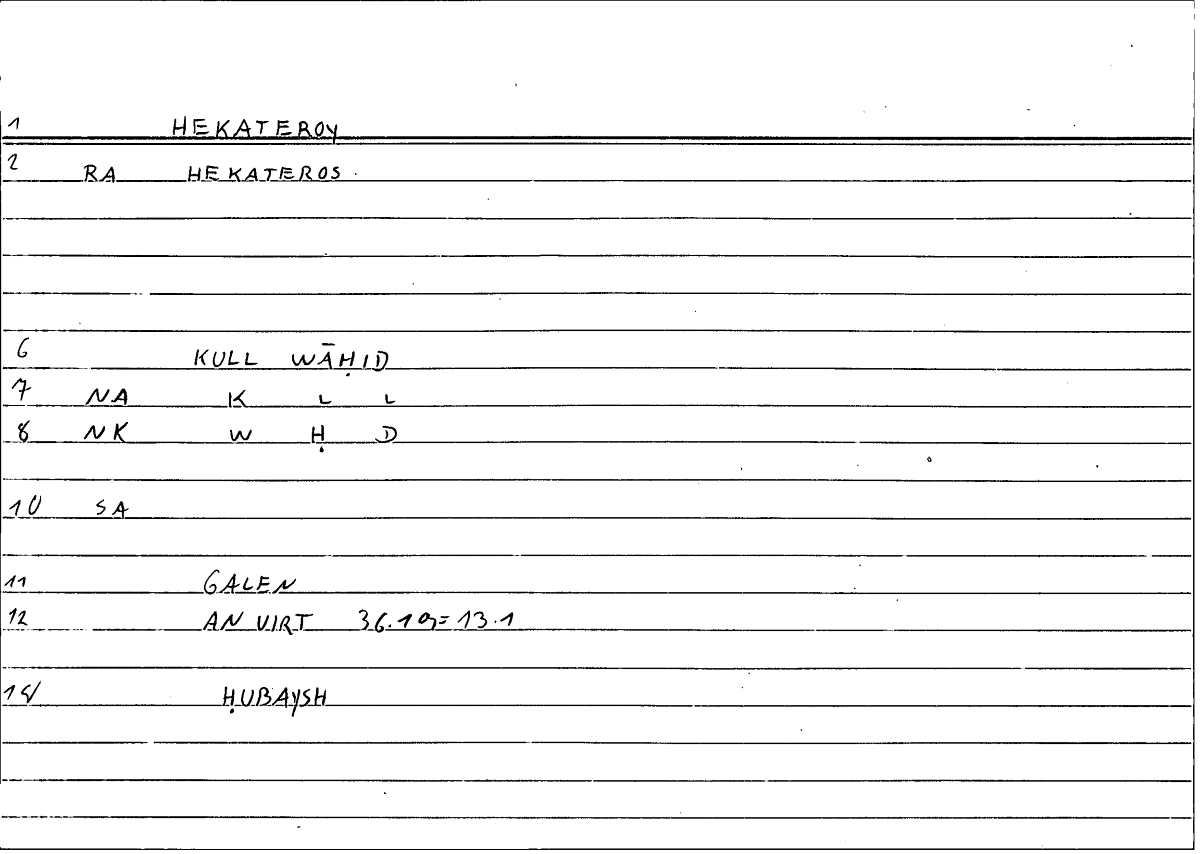 1 HEKATEROY
2 RA HEKATEROS.
6 KULL WĀḤID
7 NA K L L
8 NK W Ḥ D
10 SA
11 GALEN
12 AN VIRT 36.19=13.1
14 ḤUBAYSH